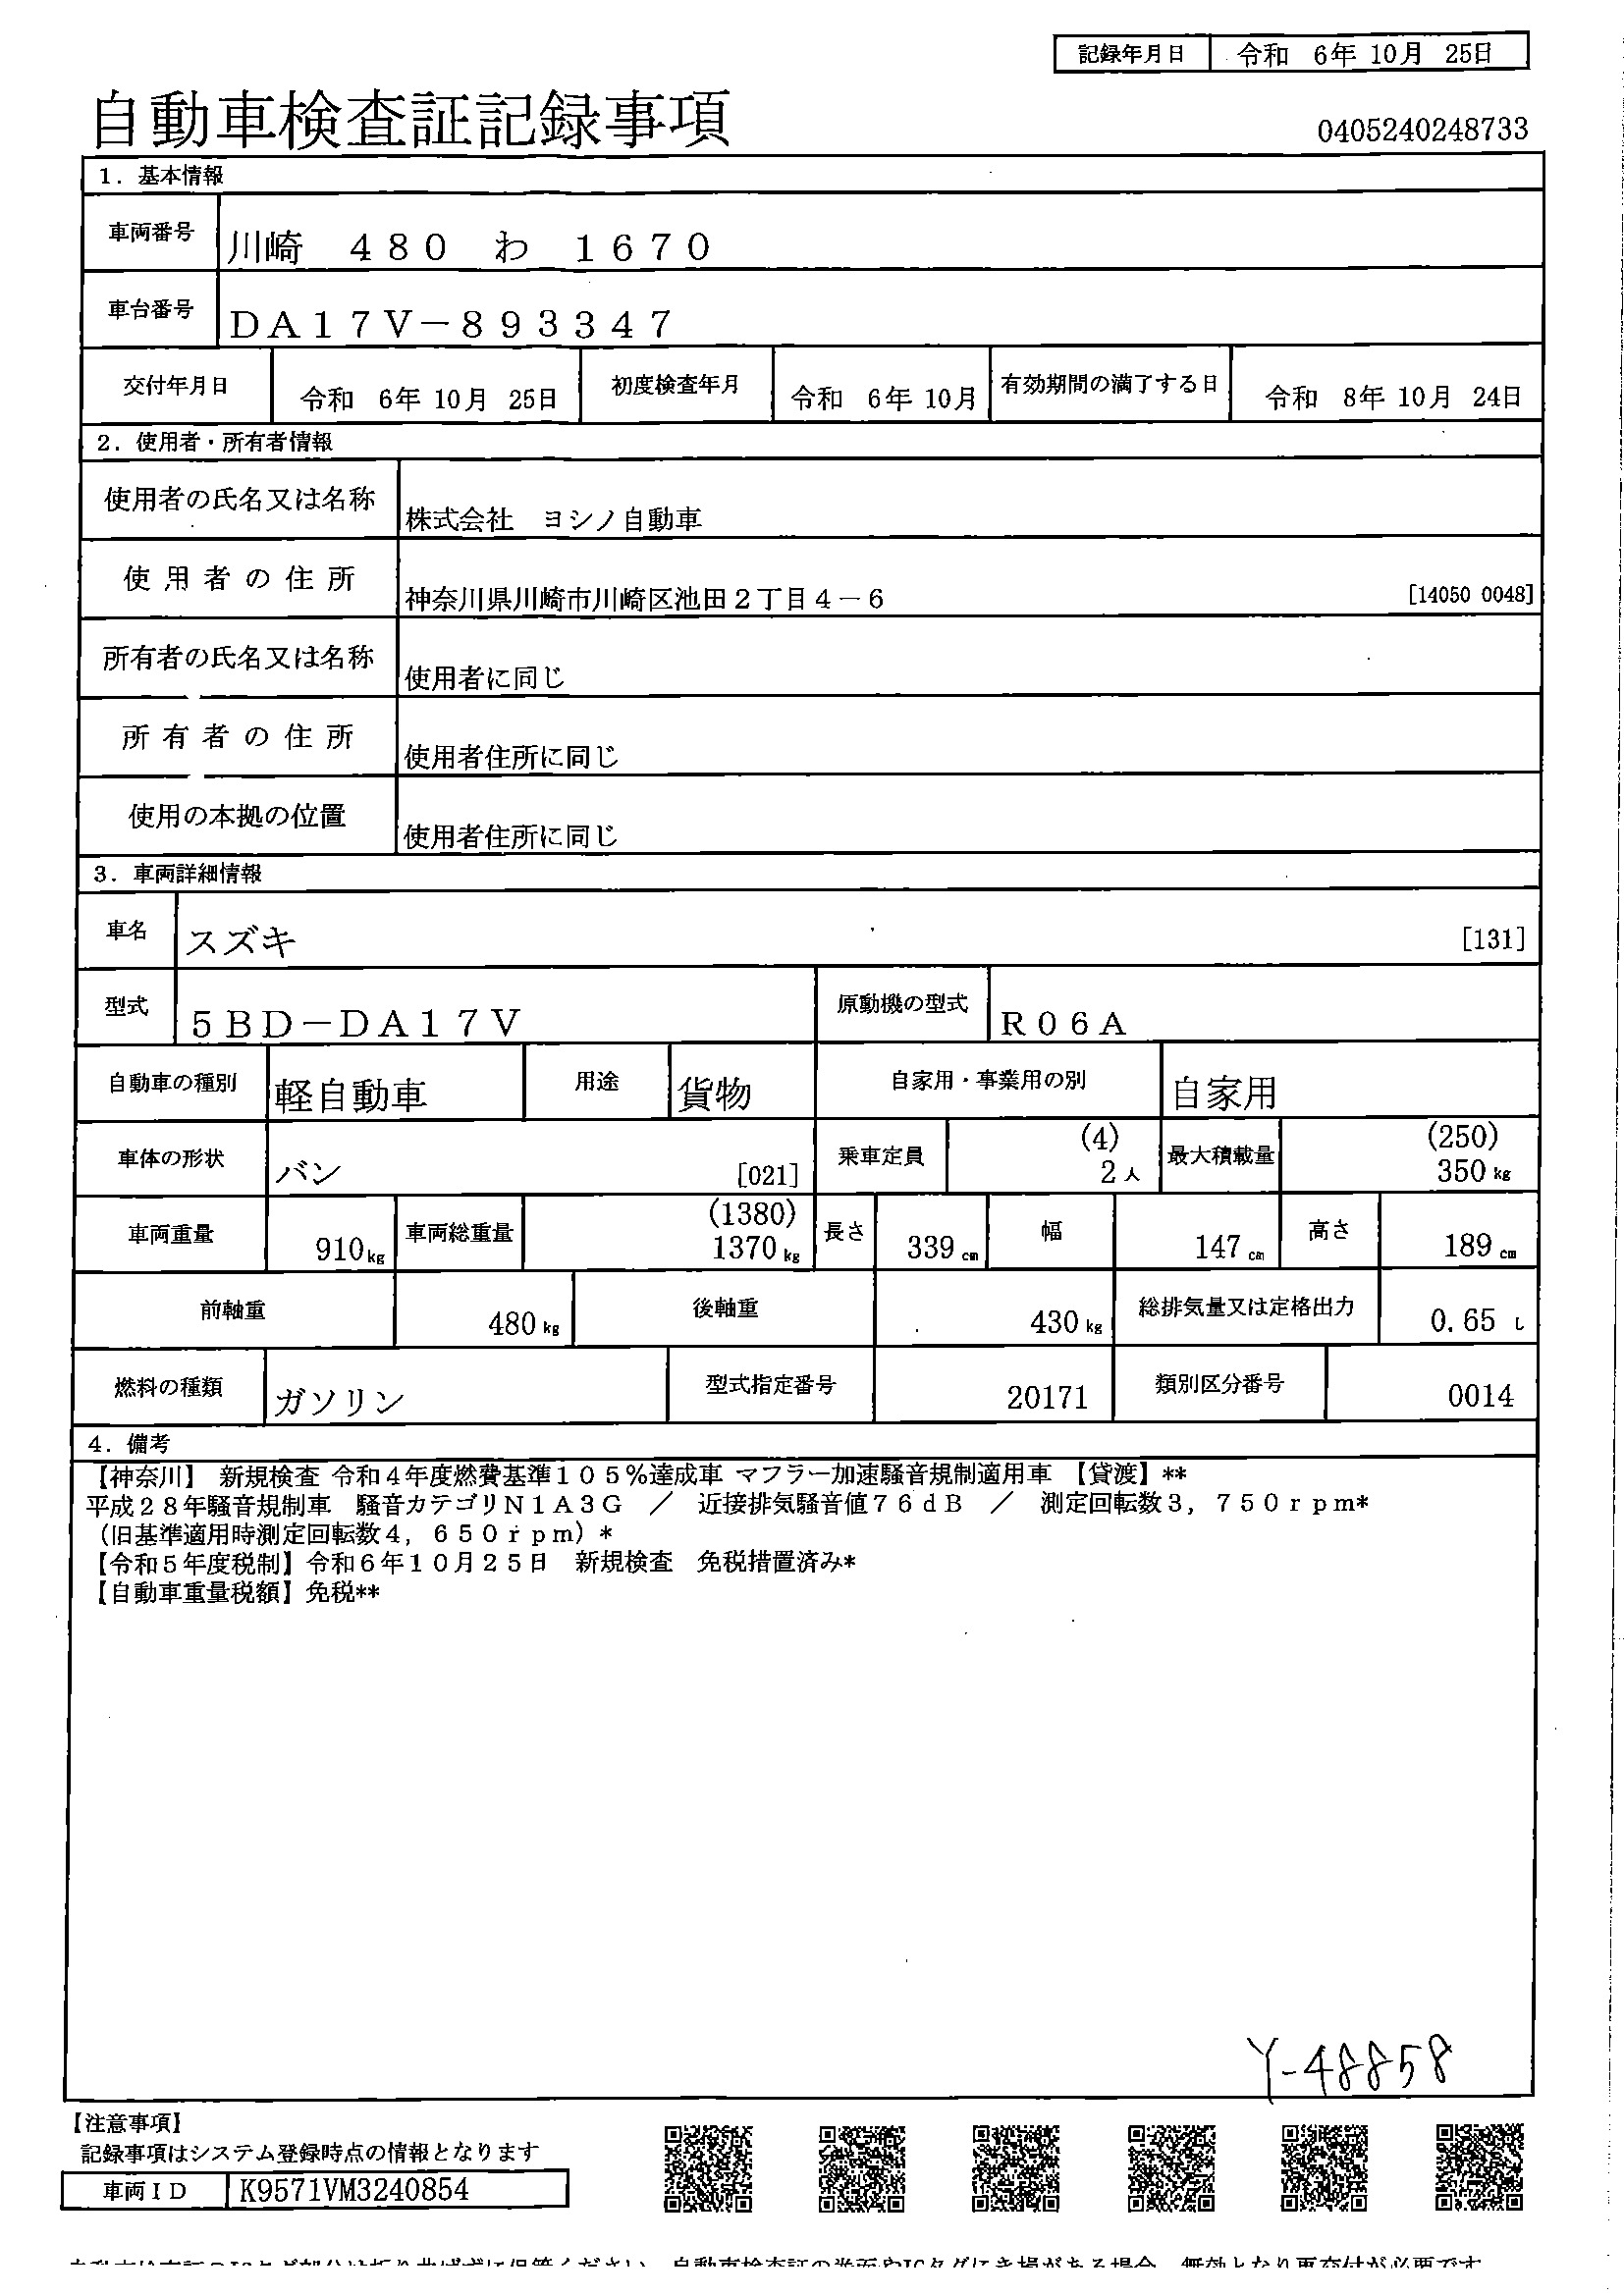 記録年月日 令和 6年 10月 25日
自動車検査証記録事項
0405240248733
1. 基本情報
車両番号 川崎 480 わ 1670
車台番号 DA17V-893347
交付年月日 令和 6年 10月 25日 初度検査年月 令和 6年 10月 有効期間の満了する日 令和 8年 10月 24日
2. 使用者・所有者情報
使用者の氏名又は名称 株式会社 ヨシノ自動車
使用者の住所 神奈川県川崎市川崎区池田2丁目4-6 [14050 0048]
所有者の氏名又は名称 使用者に同じ
所有者の住所 使用者住所に同じ
使用の本拠の位置 使用者住所に同じ
3. 車両詳細情報
車名 スズキ [131]
型式 5BD-DA17V 原動機の型式 R06A
自動車の種別 軽自動車 用途 貨物 自家用・事業用の別 自家用
車体の形状 バン [021] 乗車定員 (4) 2人 最大積載量 (250) 350kg
車両重量 910kg 車両総重量 (1380) 1370kg 長さ 339cm 幅 147cm 高さ 189cm
前軸重 480kg 後軸重 430kg 総排気量又は定格出力 0.65 L
燃料の種類 ガソリン 型式指定番号 20171 類別区分番号 0014
4. 備考
【神奈川】 新規検査 令和4年度燃費基準105%達成車 マフラー加速騒音規制適用車 【貸渡】**
平成28年騒音規制車 騒音カテゴリN1A3G / 近接排気騒音値76dB / 測定回転数3,750rpm*
(旧基準適用時測定回転数4,650rpm)*
【令和5年度税制】令和6年10月25日 新規検査 免税措置済み*
【自動車重量税額】免税**
Y-48858
【注意事項】
記録事項はシステム登録時点の情報となります
車両ID K9571VM3240854